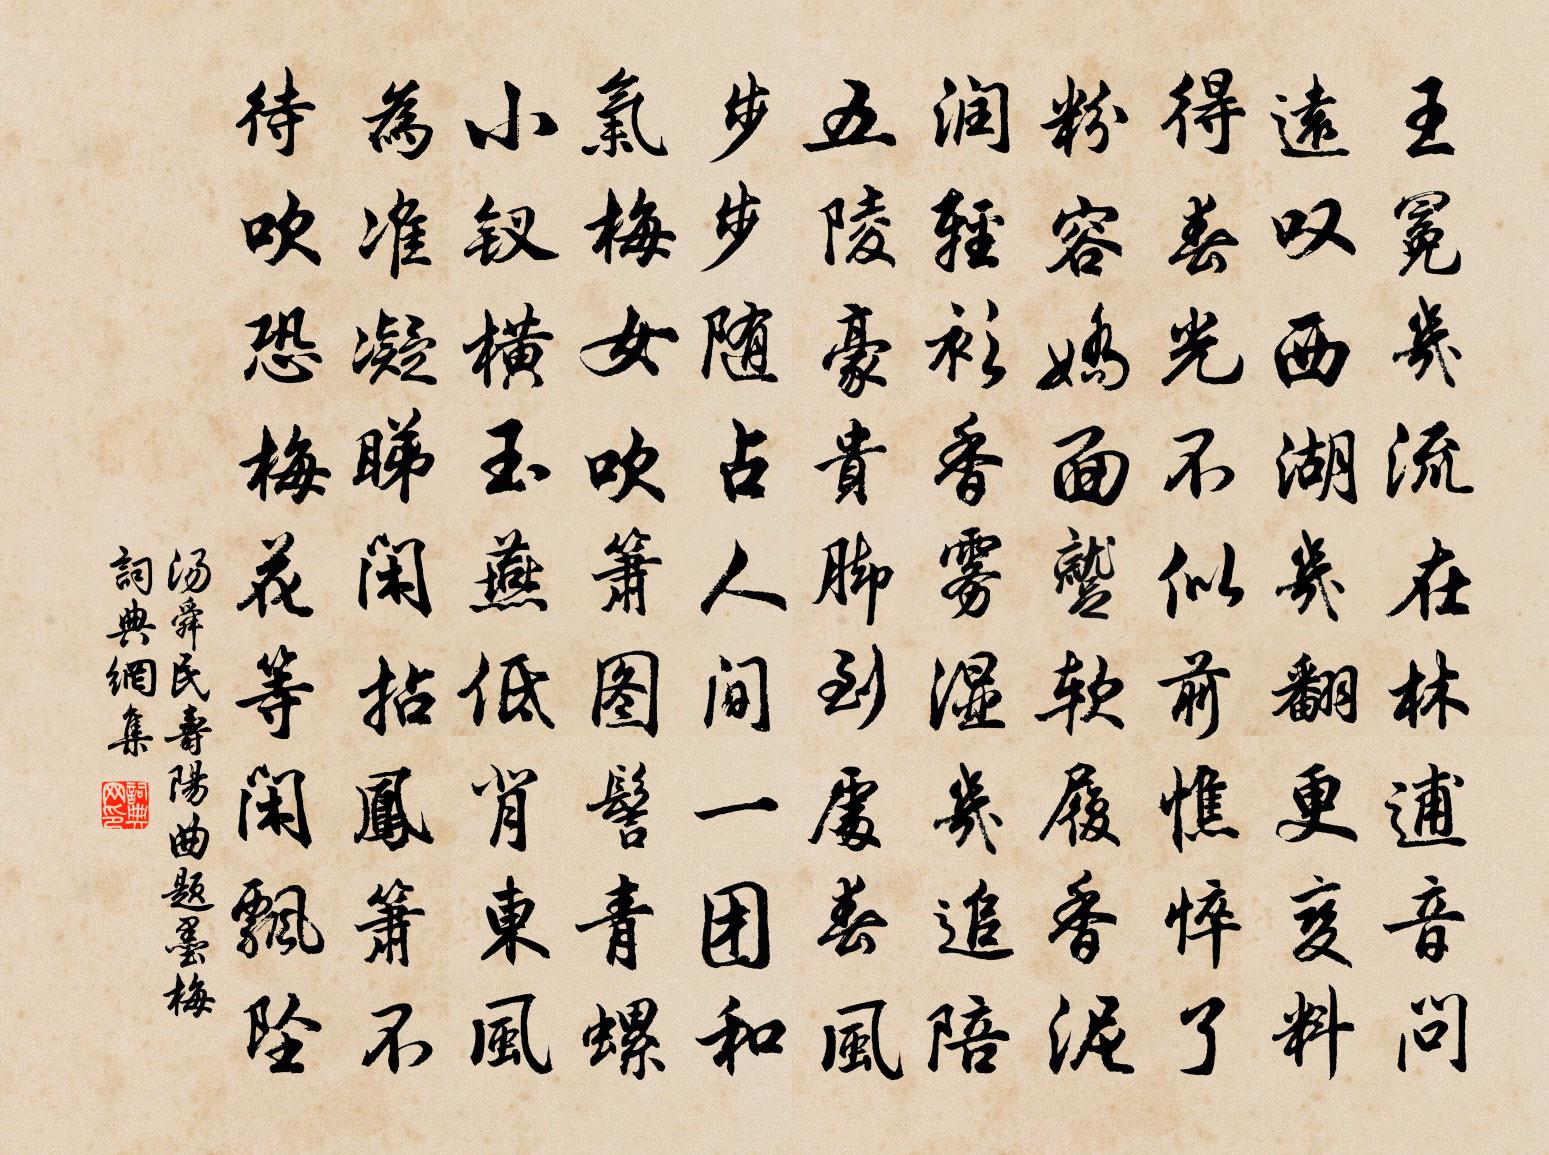 王冕几流在林逋音问
遠叹西湖几翻更变料
得春光不似前憔悴了
粉容嬌面蹙软履香泥
润輕衫香雾湿几追陪
五陵豪貴脚到處春風
步步随占人间一团和
氣梅女吹箫图髻青螺
小钗橫玉燕低背東風
為准凝睇闲拈鳳箫不
待吹恐梅花等闲飄坠
汤舜民壽陽曲题墨梅
詞典網集
詞典网印